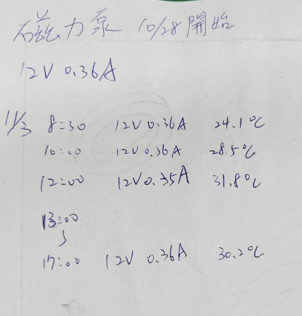 磁力泵 10/28 開始
12V 0.36A
11/3 8:30 12V 0.36A 24.1℃
10:00 12V 0.36A 28.5℃
12:00 12V 0.35A 31.8℃
13:00
17:00 12V 0.36A 30.2℃